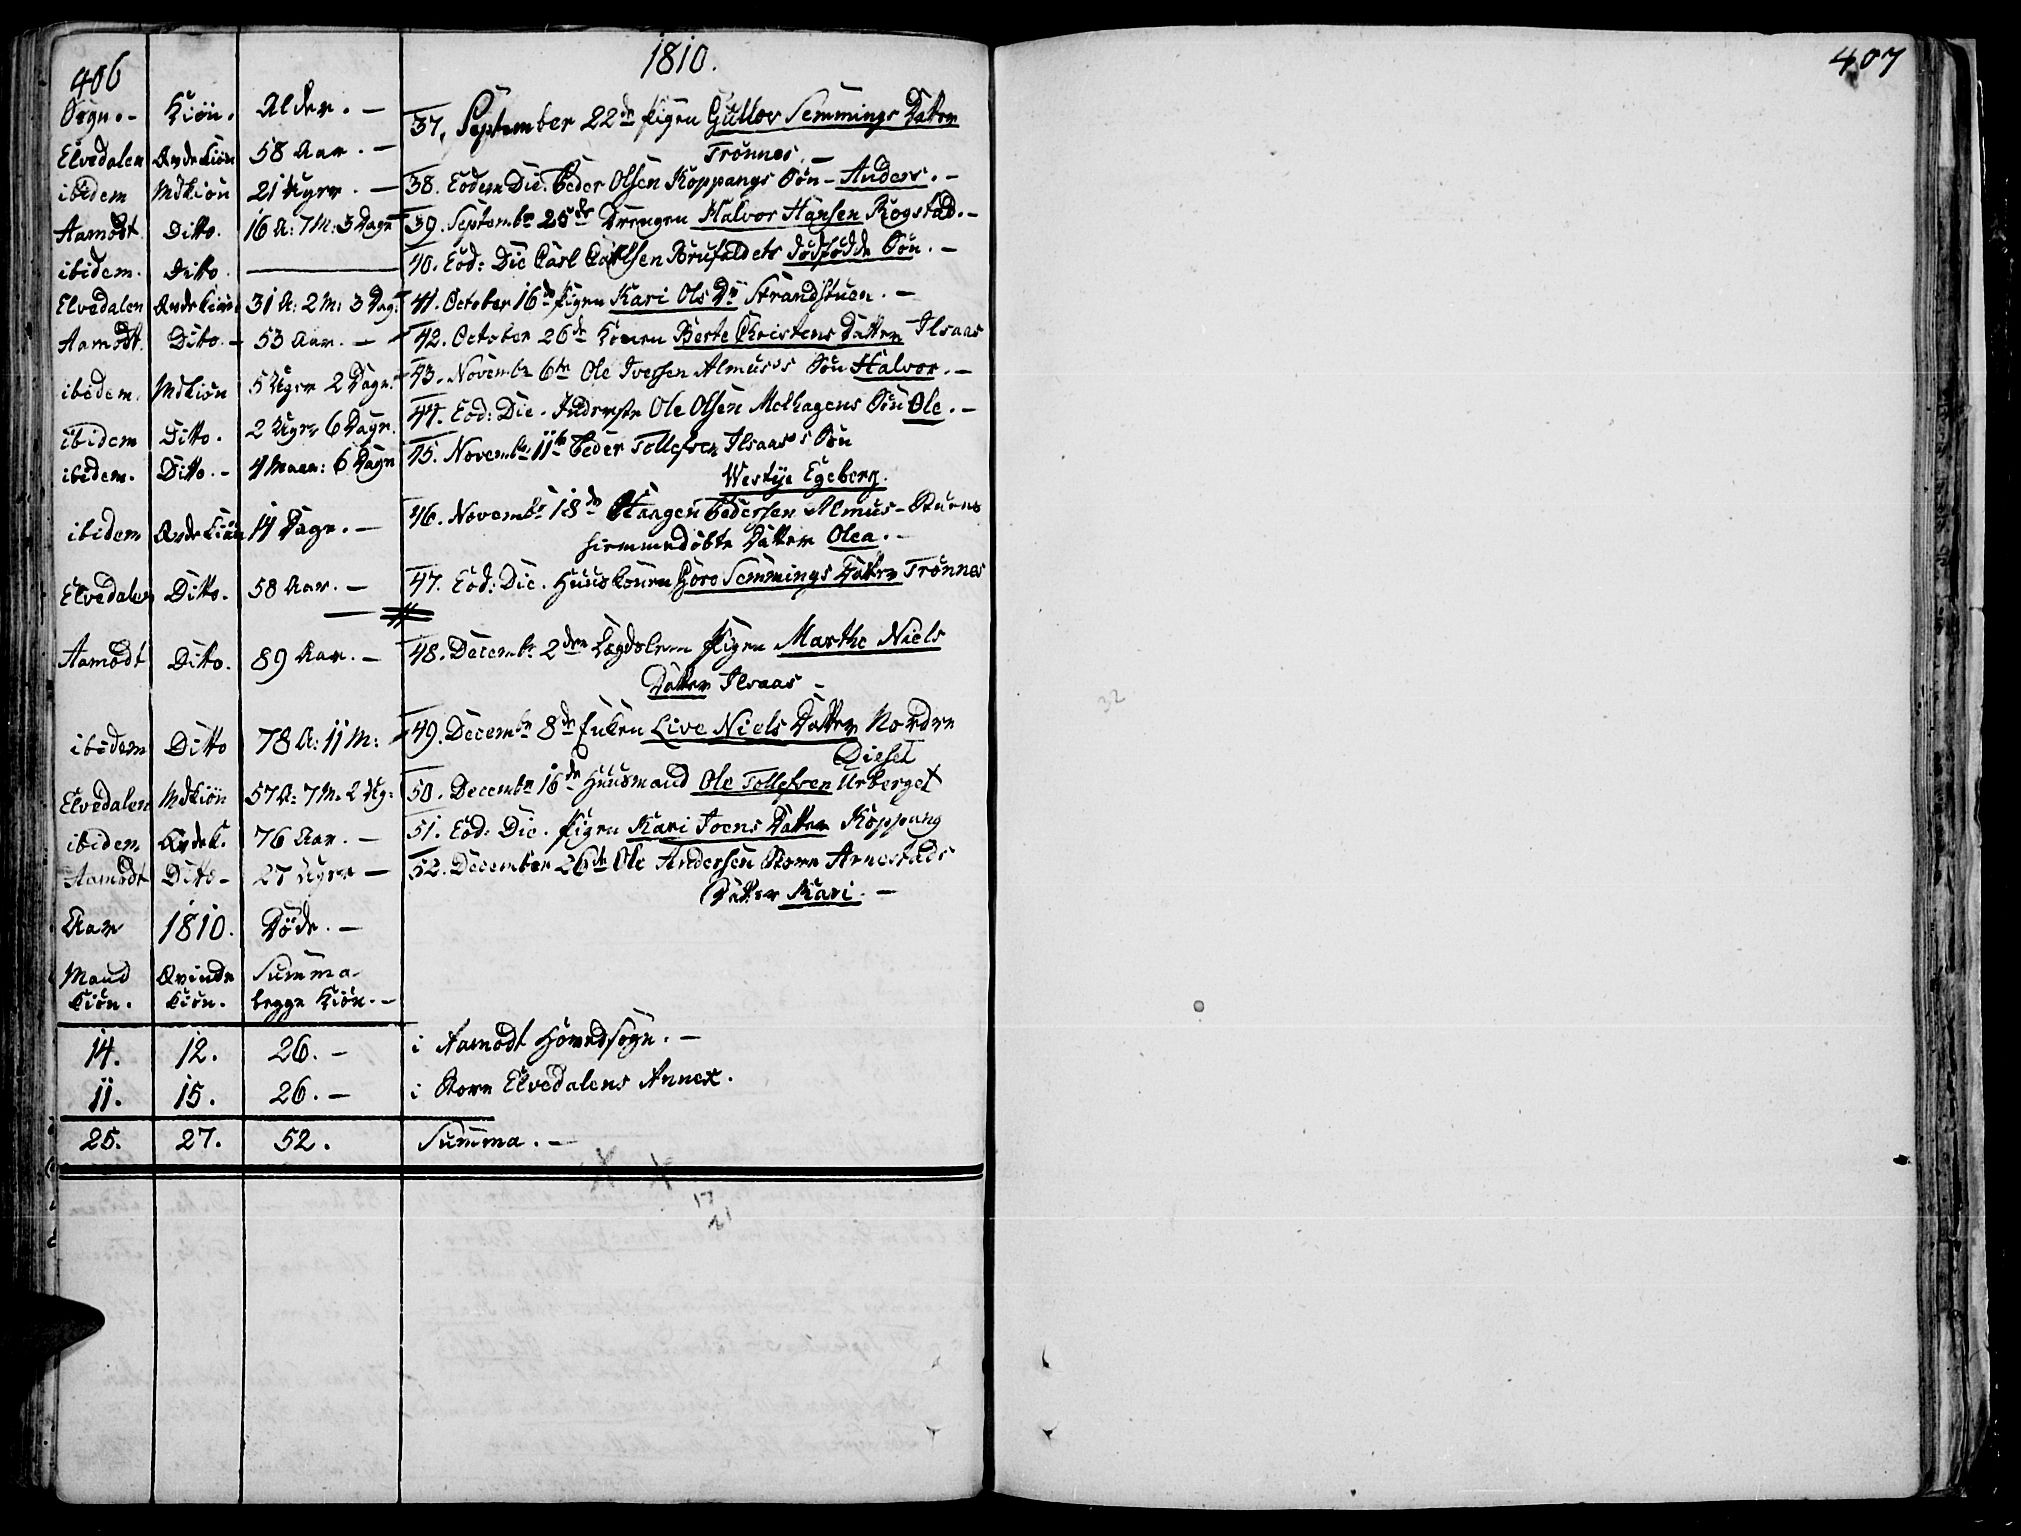 406
1810.
Sogn. - Kiön. Alder. -
Elvedalen Qvdekiön 58 Aar. - 37. September 22de Pigen Gullov Semmings Datter
Trönnes. -
ibidem Mdkiön 21 Uger. - 38. Eodem Die. Peder Olsen Koppangs Sön - Anders. -
Aamodt. Ditto. 16 A: 7 M: 3 Dage 39. Septembr 25de Drengen Halvor Hansen Rogstad. -
ibidem. Ditto. 40. Eod: Die Carl Carlsen Brufaldets dødfødde Sön. -
Elvedalen Qvdekiön 31 A: 2 M: 3 Dag: 41. October 16de Pigen Kari Ols Dr Strandstuen. -
Aamodt. Ditto. - 53 Aar. - 42. October 26de Konen Berte Christens Datter Ilsaas
ibidem. Mdkiön 5 Uger 2 Dage. 43. Novembr 6te Ole Iversen Almus's Sön Halvor. -
ibidem Ditto. 2 Uger 6 Dage. 44. Eod: Die. Inderste Ole Olsen Melhagens Sön Ole. -
ibidem. Ditto. - 4 Maan: 6 Dage 45. Novembr 11te Peder Tollefsen Ilsaas's Sön
Westye Egeberg.
ibidem Qvdekiön 14 Dage. - 46. Novembr 18de Haagen Pedersen Almus-Stuens
hiemmedöbte Datter Olea. -
Elvedalen Ditto. 58 Aar. - 47. Eod: Die. Huuskonen Goro Semmings Datter Trönnes
Aamodt Ditto. 89 Aar. - 48. Decembr 2den Lægdslem Pigen Marthe Niels
Datter Ilsaas -
ibidem Ditto 78 A: 11 M: 49. Decembr 8de Enken Live Niels Datter Nordre
Diesel
Elvedalen Mdkiön 57 A: 7 M. 2 Ug: 50. Decembr 16de Huusmand Ole Tollefsen Urberget
ibidem Qvdek. 76 Aar. - 51. Eod: Die. Pigen Kari Joens Datter Koppang
Aamodt Ditto - 27 Uger - 52. December 26de Ole Andersen Store Arnestads
Datter Kari. -
Aar 1810. Döde. -
Mand Qvinde Summa
kiön. kiön. begge Kiön. -
14. 12. 26. - i Aamodt Hovedsogn. -
11. 15. 26. - i Store Elvedalens Annex.
25. 27. 52. Summa. -
17
21
407
32